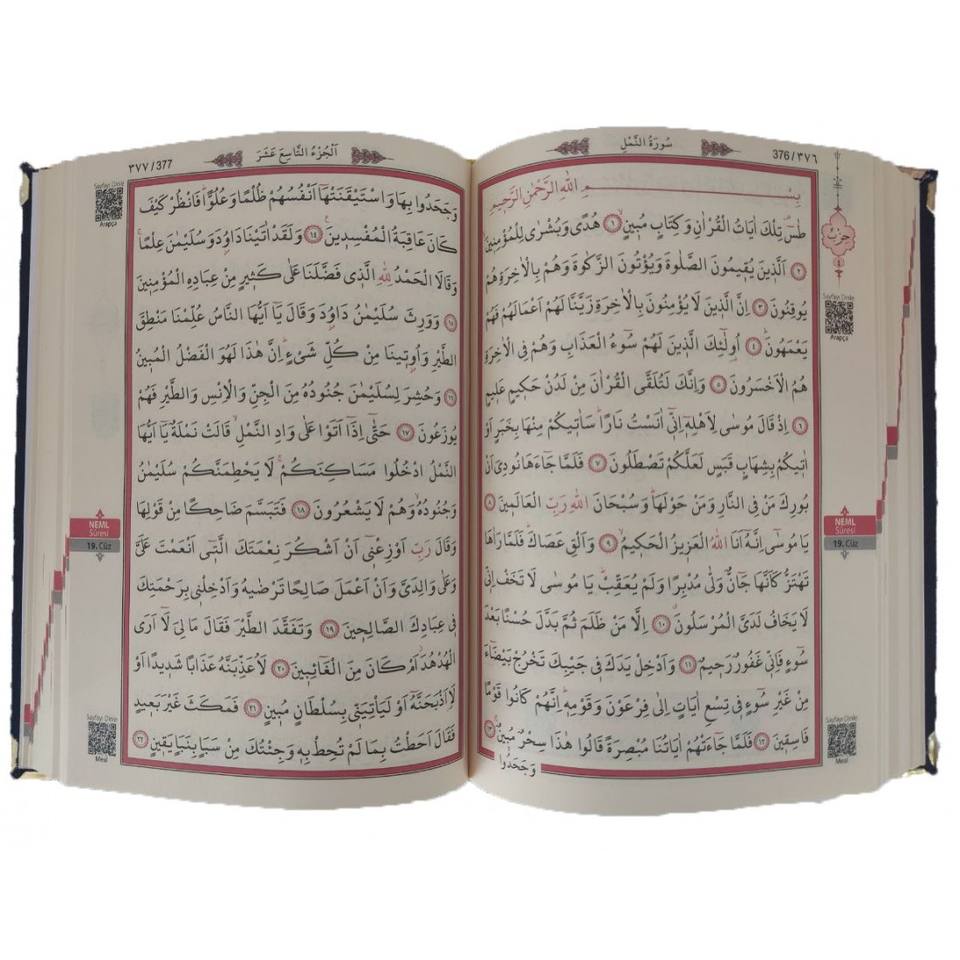 سُورَةُ النَّمْلِ
376/٣٧٦
بِسْمِ اللّٰهِ الرَّحْمٰنِ الرَّحٖيمِ
طٰسٓ تِلْكَ اٰيَاتُ الْقُرْاٰنِ وَكِتَابٍ مُبٖينٍۙ ﴿١﴾ هُدًى وَبُشْرٰى لِلْمُؤْمِنٖينَۙ
﴿٢﴾ اَلَّذٖينَ يُقٖيمُونَ الصَّلٰوةَ وَيُؤْتُونَ الزَّكٰوةَ وَهُمْ بِالْاٰخِرَةِ هُمْ
يُوقِنُونَ ﴿٣﴾ اِنَّ الَّذٖينَ لَا يُؤْمِنُونَ بِالْاٰخِرَةِ زَيَّنَّا لَهُمْ اَعْمَالَهُمْ فَهُمْ
يَعْمَهُونَۜ ﴿٤﴾ اُولٰٓئِكَ الَّذٖينَ لَهُمْ سُٓوءُ الْعَذَابِ وَهُمْ فِي الْاٰخِرَةِ
هُمُ الْاَخْسَرُونَ ﴿٥﴾ وَاِنَّكَ لَتُلَقَّى الْقُرْاٰنَ مِنْ لَدُنْ حَكٖيمٍ عَلٖيمٍ
﴿٦﴾ اِذْ قَالَ مُوسٰى لِاَهْلِهٖٓ اِنّٖٓي اٰنَسْتُ نَارًاۜ سَاٰتٖيكُمْ مِنْهَا بِخَبَرٍ اَوْ
اٰتٖيكُمْ بِشِهَابٍ قَبَسٍ لَعَلَّكُمْ تَصْطَلُونَ ﴿٧﴾ فَلَمَّا جَٓاءَهَا نُودِيَ اَنْ
بُورِكَ مَنْ فِي النَّارِ وَمَنْ حَوْلَهَاۜ وَسُبْحَانَ اللّٰهِ رَبِّ الْعَالَمٖينَ ﴿٨﴾
يَا مُوسٰٓى اِنَّهُٓ اَنَا اللّٰهُ الْعَزٖيزُ الْحَكٖيمُۙ ﴿٩﴾ وَاَلْقِ عَصَاكَۜ فَلَمَّا رَاٰهَا
تَهْتَزُّ كَاَنَّهَا جَٓانٌّ وَلّٰى مُدْبِرًا وَلَمْ يُعَقِّبْۜ يَا مُوسٰى لَا تَخَفْ اِنّٖي
لَا يَخَافُ لَدَيَّ الْمُرْسَلُونَۗ ﴿١٠﴾ اِلَّا مَنْ ظَلَمَ ثُمَّ بَدَّلَ حُسْنًا بَعْدَ
سُٓوءٍ فَاِنّٖي غَفُورٌ رَحٖيمٌ ﴿١١﴾ وَاَدْخِلْ يَدَكَ فٖي جَيْبِكَ تَخْرُجْ بَيْضَٓاءَ
مِنْ غَيْرِ سُٓوءٍ فٖي تِسْعِ اٰيَاتٍ اِلٰى فِرْعَوْنَ وَقَوْمِهٖۜ اِنَّهُمْ كَانُوا قَوْمًا
فَاسِقٖينَ ﴿١٢﴾ فَلَمَّا جَٓاءَتْهُمْ اٰيَاتُنَا مُبْصِرَةً قَالُوا هٰذَا سِحْرٌ مُبٖينٌۚ ﴿١٣﴾
وَجَحَدُوا
حِزْب
Sayfayı Dinle
Arapça
NEML
Sûresi
19. Cüz
Sayfayı Dinle
Meal
٣٧٧/377
اَلْجُزْءُ التَّاسِعَ عَشَرَ
وَجَحَدُوا بِهَا وَاسْتَيْقَنَتْهَٓا اَنْفُسُهُمْ ظُلْمًا وَعُلُوًّاۜ فَانْظُرْ كَيْفَ
كَانَ عَاقِبَةُ الْمُفْسِدٖينَ۟ ﴿١٤﴾ وَلَقَدْ اٰتَيْنَا دَاوُ۫دَ وَسُلَيْمٰنَ عِلْمًاۚ
وَقَالَا الْحَمْدُ لِلّٰهِ الَّذٖي فَضَّلَنَا عَلٰى كَثٖيرٍ مِنْ عِبَادِهِ الْمُؤْمِنٖينَ
﴿١٥﴾ وَوَرِثَ سُلَيْمٰنُ دَاوُ۫دَ وَقَالَ يَٓا اَيُّهَا النَّاسُ عُلِّمْنَا مَنْطِقَ
الطَّيْرِ وَاُو۫تٖينَا مِنْ كُلِّ شَيْءٍۜ اِنَّ هٰذَا لَهُوَ الْفَضْلُ الْمُبٖينُ
﴿١٦﴾ وَحُشِرَ لِسُلَيْمٰنَ جُنُودُهُ مِنَ الْجِنِّ وَالْاِنْسِ وَالطَّيْرِ فَهُمْ
يُوزَعُونَ ﴿١٧﴾ حَتّٰٓى اِذَٓا اَتَوْا عَلٰى وَادِ النَّمْلِۙ قَالَتْ نَمْلَةٌ يَٓا اَيُّهَا
النَّمْلُ ادْخُلُوا مَسَاكِنَكُمْۚ لَا يَحْطِمَنَّكُمْ سُلَيْمٰنُ
وَجُنُودُهُۙ وَهُمْ لَا يَشْعُرُونَ ﴿١٨﴾ فَتَبَسَّمَ ضَاحِكًا مِنْ قَوْلِهَا
وَقَالَ رَبِّ اَوْزِعْنٖٓي اَنْ اَشْكُرَ نِعْمَتَكَ الَّتٖٓي اَنْعَمْتَ عَلَيَّ
وَعَلٰى وَالِدَيَّ وَاَنْ اَعْمَلَ صَالِحًا تَرْضٰيهُ وَاَدْخِلْنٖي بِرَحْمَتِكَ
فٖي عِبَادِكَ الصَّالِحٖينَ ﴿١٩﴾ وَتَفَقَّدَ الطَّيْرَ فَقَالَ مَا لِيَ لَٓا اَرَى
الْهُدْهُدَۘ اَمْ كَانَ مِنَ الْغَٓائِبٖينَ ﴿٢٠﴾ لَاُعَذِّبَنَّهُ عَذَابًا شَدٖيدًا اَوْ
لَا۬اَذْبَحَنَّهُٓ اَوْ لَيَاْتِيَنّٖي بِسُلْطَانٍ مُبٖينٍ ﴿٢١﴾ فَمَكَثَ غَيْرَ بَعٖيدٍ
فَقَالَ اَحَطْتُ بِمَا لَمْ تُحِطْ بِهٖ وَجِئْتُكَ مِنْ سَبَأٍ بِنَبَأٍ يَقٖينٍ ﴿٢٢﴾
Sayfayı Dinle
Arapça
NEML
Sûresi
19. Cüz
Sayfayı Dinle
Meal